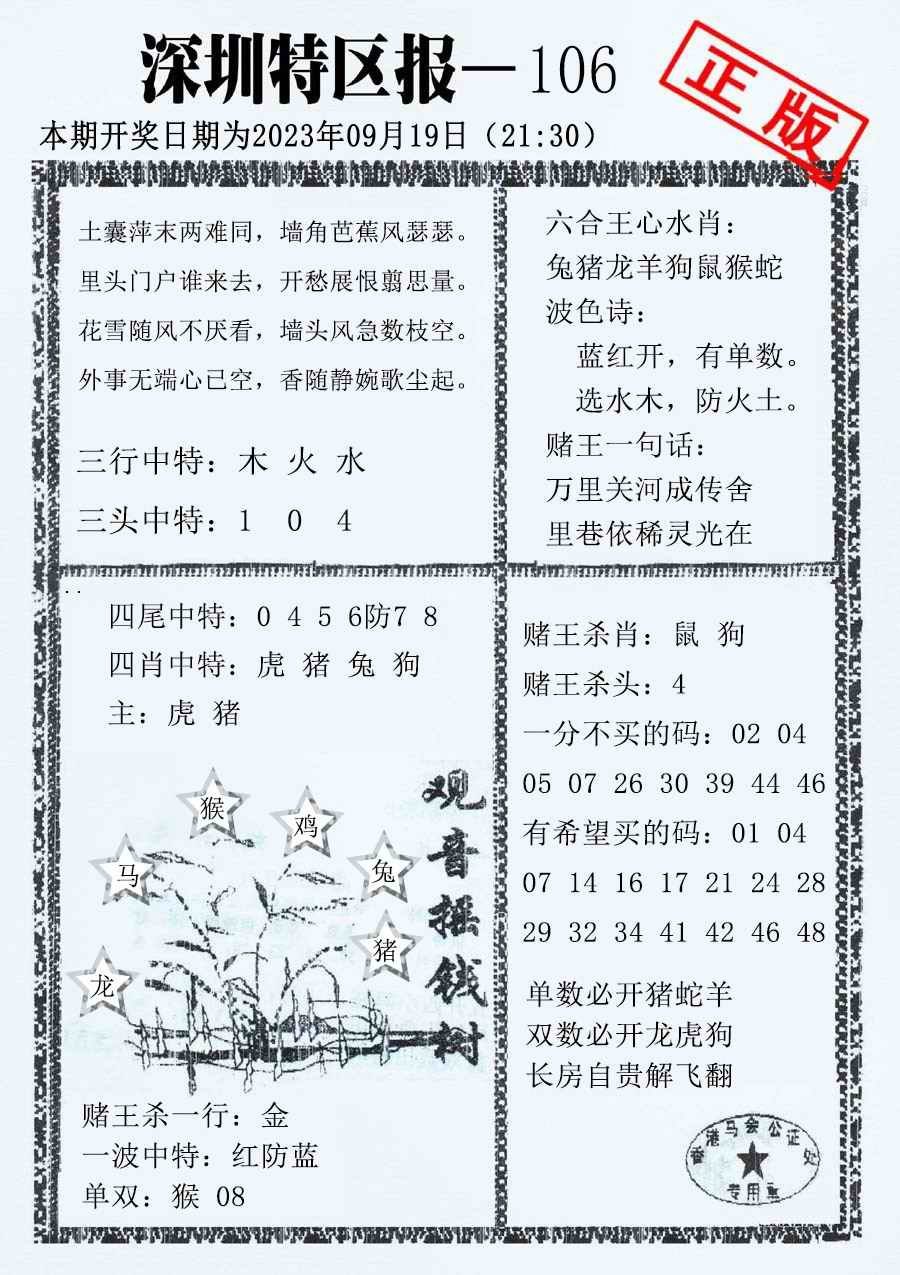 深圳特区报—106
正版
本期开奖日期为2023年09月19日（21:30）
土囊萍末两难同，墙角芭蕉风瑟瑟。
里头门户谁来去，开愁展恨翦思量。
花雪随风不厌看，墙头风急数枝空。
外事无端心已空，香随静婉歌尘起。
三行中特：木 火 水
三头中特：1 0 4
六合王心水肖：
兔猪龙羊狗鼠猴蛇
波色诗：
蓝红开，有单数。
选水木，防火土。
赌王一句话：
万里关河成传舍
里巷依稀灵光在
四尾中特：0 4 5 6防7 8
四肖中特：虎 猪 兔 狗
主：虎 猪
猴
鸡
马
兔
猪
龙
观音摇钱树
赌王杀一行：金
一波中特：红防蓝
单双：猴 08
赌王杀肖：鼠 狗
赌王杀头：4
一分不买的码：02 04
05 07 26 30 39 44 46
有希望买的码：01 04
07 14 16 17 21 24 28
29 32 34 41 42 46 48
单数必开猪蛇羊
双数必开龙虎狗
长房自贵解飞翻
香港马会公证处
专用章